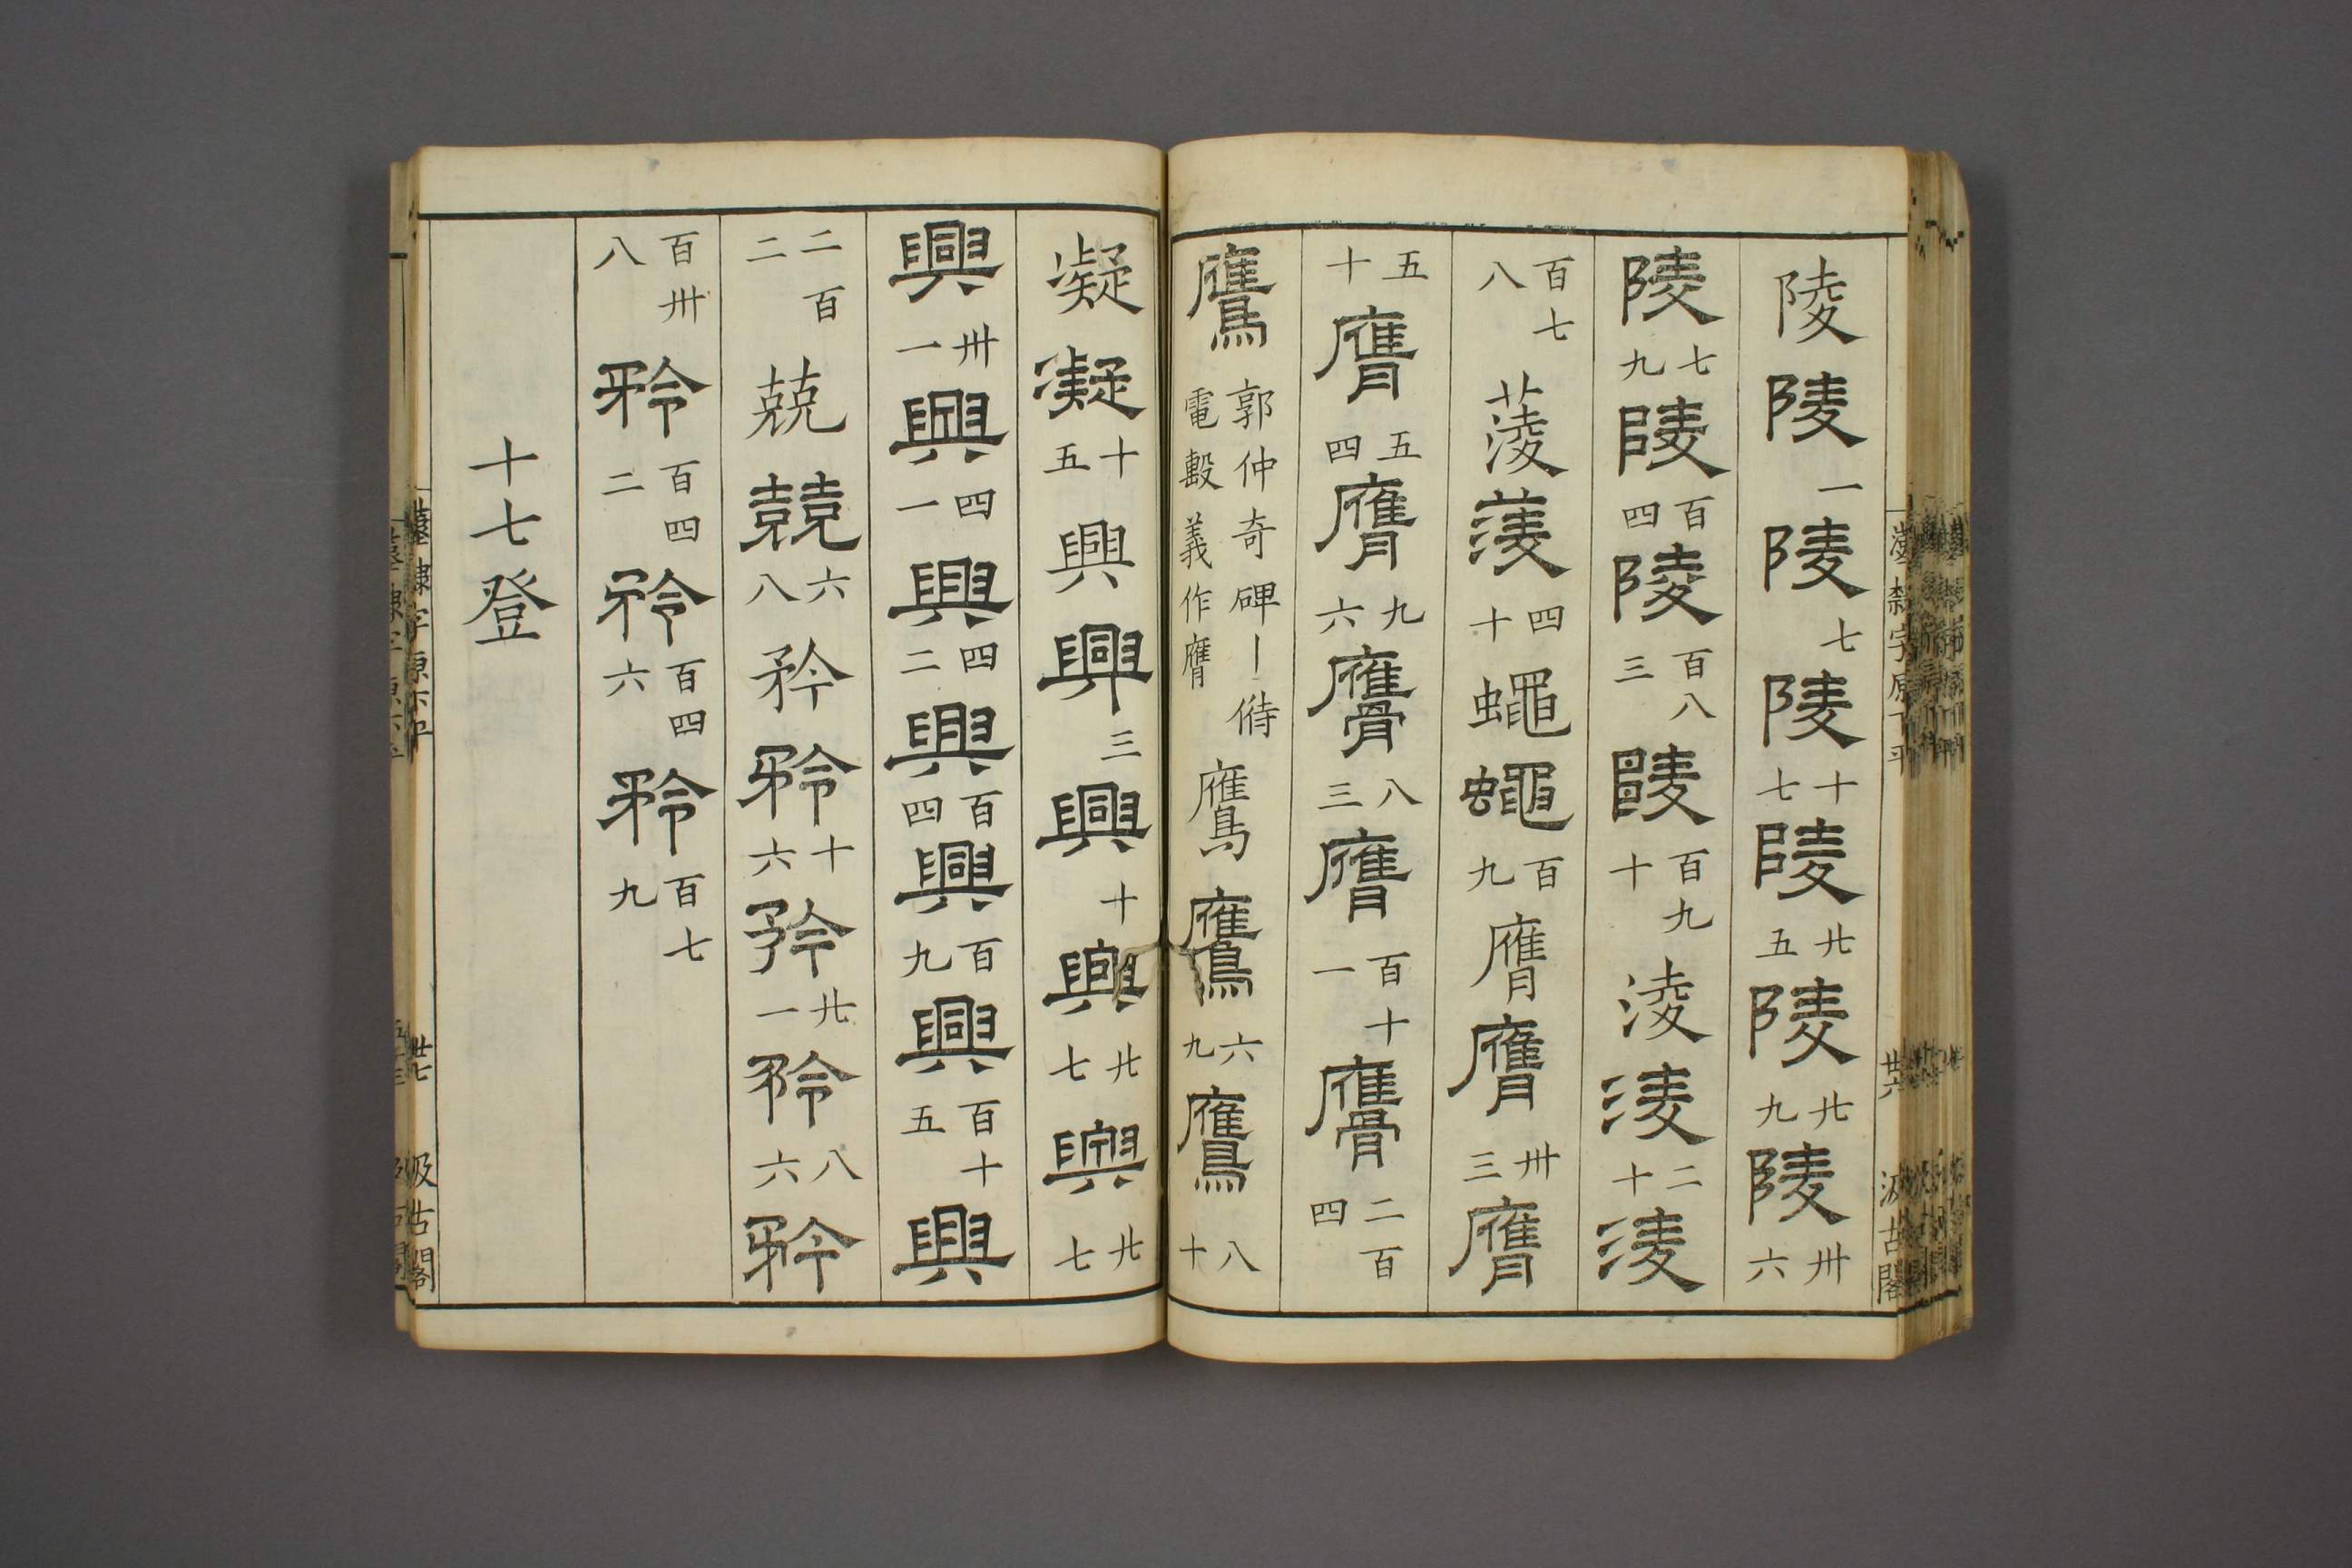 陵陵一陵七陵十七陵廿五陵廿九陵卅六
陵七九陵百四陵百八三陵百九十淩淩二十淩
百七八蔆蔆四十蠅蠅百九膺膺卅三膺
五十膺五四膺九六膺八三膺百十一膺二百四
鷹郭仲奇碑丨偫電毄義作膺鷹鷹六九鷹八十
凝凝十五興興三興十興廿七興廿七
興卅一興四一興四二興百四興百九興百十五興
二百二兢兢六八矜矜十六矜廿一矜八六矜
百卅八矜百四二矜百四六矜百七九
十七登
隸字原下平
廿六
汲古閣
隸字原下平
廿七
汲古閣